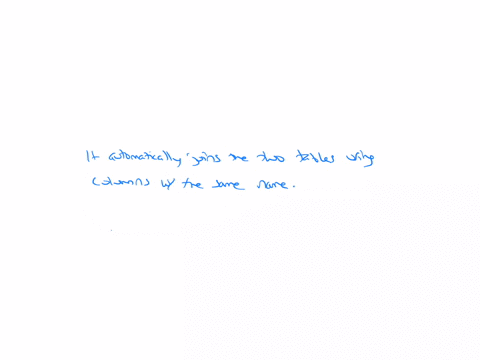 It automatically joins the two tables using
columns w/ the same name.